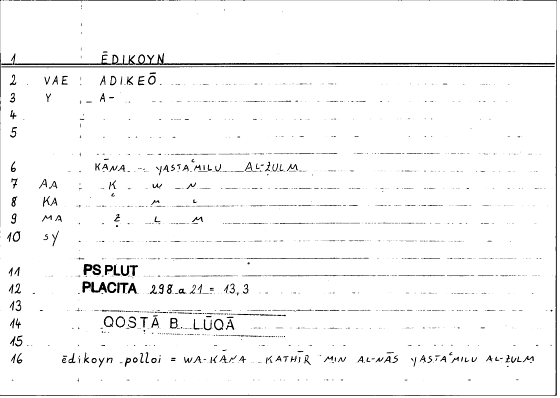 1 ĒDIKOYN
2 VAE ADIKEŌ
3 Y A-
4
5
6 KĀNA - YASTAʿMILU AL-ẒULM
7 AA K W N
8 KA ʿ M L
9 MA Ẓ L M
10 SY
11 PS PLUT
12 PLACITA 298 a 21 = 13,3
13
14 QOSṬĀ B. LŪQĀ
15
16 ēdikoyn polloi = WA-KĀNA KATHĪR MIN AL-NĀS YASTAʿMILU AL-ẒULM